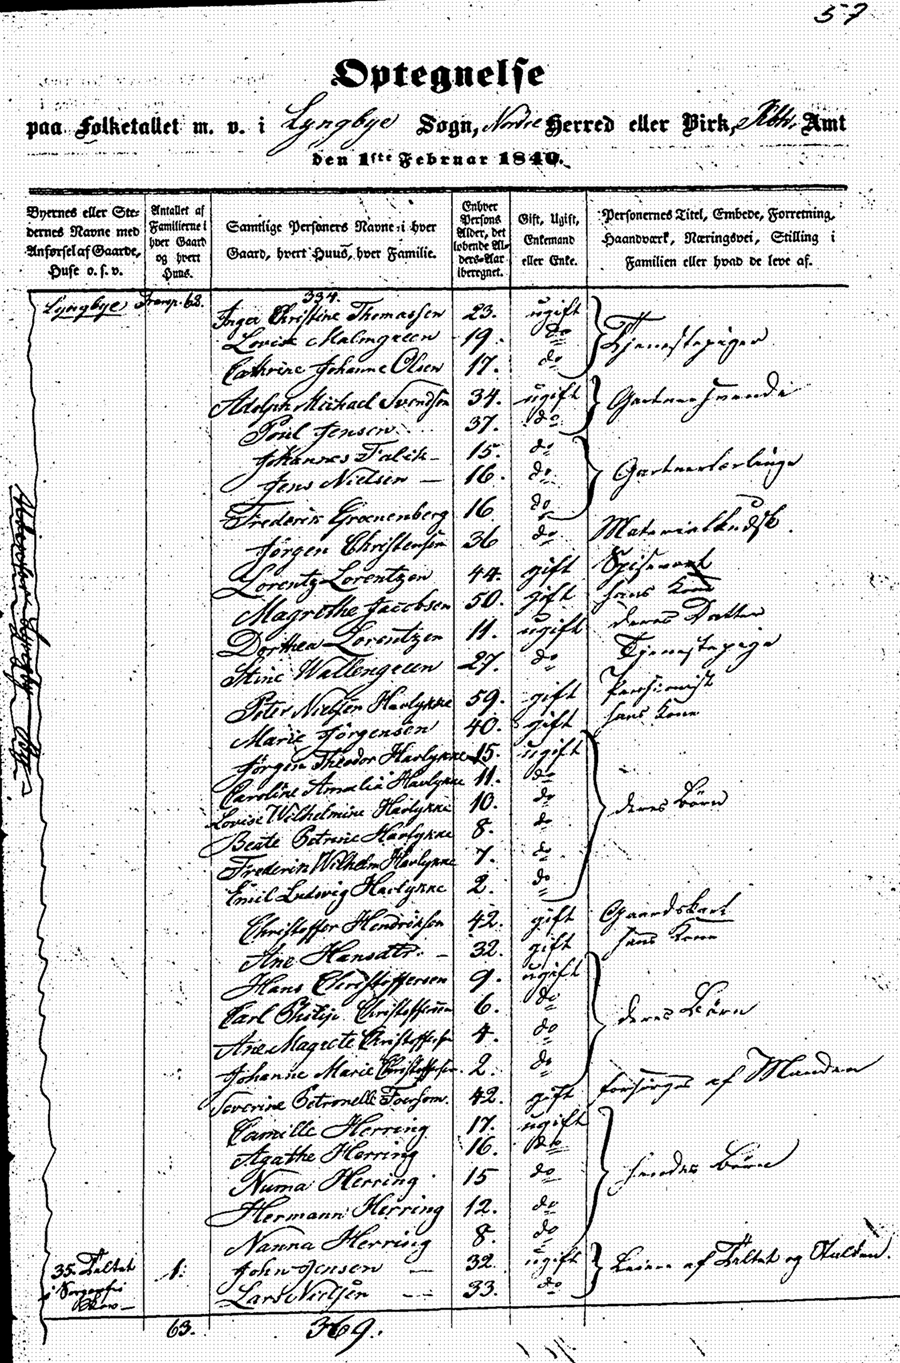 57
Optegnelse
paa Folketallet m. v. i Lyngbye Sogn, Nordre Herred eller Birk, Kbh. Amt
den 1ste Februar 1840.
Byernes eller Ste-
dernes Navne med
Anførsel af Gaarde,
Huse o. s. v.
Antallet af
Familierne i
hver Gaard
og hvert
Huus.
Samtlige Personers Navne i hver
Gaard, hvert Huus, hver Familie.
Enhver
Persons
Alder, det
løbende Al-
ders-Aar
iberegnet.
Gift, Ugift,
Enkemand
eller Enke.
Personernes Titel, Embede, Forretning,
Haandværk, Næringsvei, Stilling i
Familien eller hvad de leve af.
Lyngbye Transp. 62. 334.
Inger Christine Thomassen 23. ugift
Lovise Malmgreen 19. do
Tjenestepiger
Cathrine Johanne Olsen 17. do
Adolph Michael Svendsen 34. ugift
Gartnersvende
Poul Jensen 37. do
Johannes Falck 15. do
Jens Nielsen — 16. do
Gartnerlærlinge
Frederik Groenenberg 16 do
Jørgen Christensen 36 do
Lorentz Lorentzen 44. gift Spisevert
Magrethe Jacobsen 50. gift hans Kone
Dorthea Lorentzen 11. ugift deres Datter
Stine Wallengreen 27. do Tjenestepige
Peter Nielsen Havlykke 59. gift Pensionist
Marie Jörgensen 40. gift hans Kone
Jørgen Theodor Havlykke 15. ugift
Caroline Amalia Havlykke 11. do
Lovise Wilhelmine Havlykke 10. do
deres Børn
Beate Petrine Havlykke 8. do
Frederik Wilhelm Havlykke 7. do
Emil Ludvig Havlykke 2. do
Christoffer Hendriksen 42. gift
Ane Hansdtr. — 32. gift hans Kone
Hans Christoffersen 9. ugift
Carl Philip Christoffersen 6. do
deres Børn
Ane Magrete Christoffersen 4. do
Johanne Marie Christoffersen 2. do
Severine Petronelle 42. gift forsørges af Manden
Camille Herring 17. ugift
Agathe Herring 16. do
Numa Herring 15 do
hendes Børn
Hermann Herring 12. do
Nanna Herring 8. do
35. Teltet
i Sorgenfri
Skov —
1.
John Jensen — 32. ugift
Leiere af Teltet og Stalden.
Lars Nielsen — 33. do
63. 369.